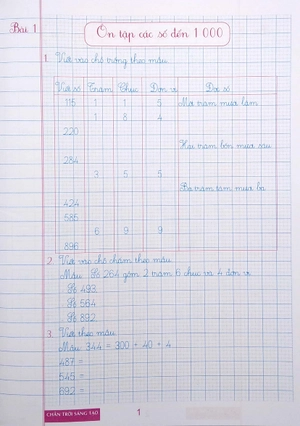 Bài 1
Ôn tập các số đến 1 000
1. Viết vào chỗ trống theo mẫu.
Viết số Trăm Chục Đơn vị Đọc số
115 1 1 5 Một trăm mười lăm
1 8 4
220
Hai trăm bốn mươi sáu
284
3 5 5
Ba trăm tám mươi ba
424
585
6 9 9
896
2. Viết vào chỗ chấm theo mẫu.
Mẫu: Số 264 gồm 2 trăm 6 chục và 4 đơn vị
Số 493
Số 564
Số 892
3. Viết theo mẫu
Mẫu: 344 = 300 + 40 + 4
487 =
545 =
692 =
CHÂN TRỜI SÁNG TẠO
1